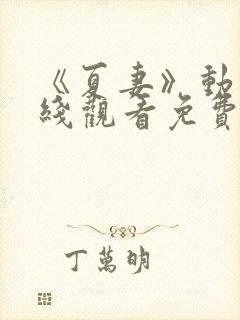 《夏妻》動
綫觀看免費
丁萬明